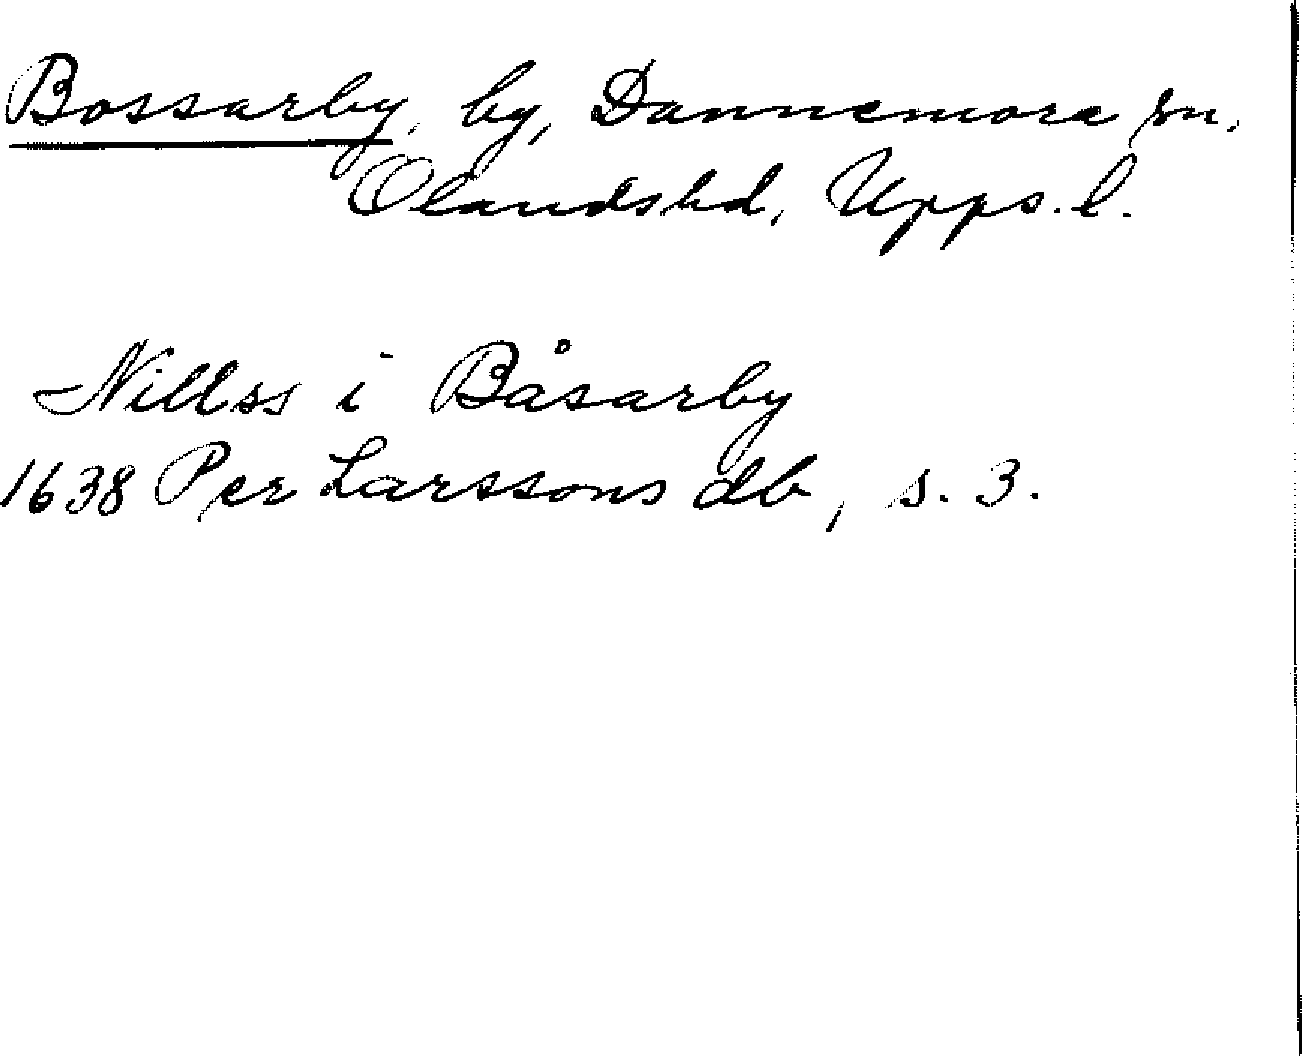 Bossarby, by, Dannemora sn.
Olandshd, Upps. l.
Nillss i Båsarby
1638 Per Larssons db, s. 3.